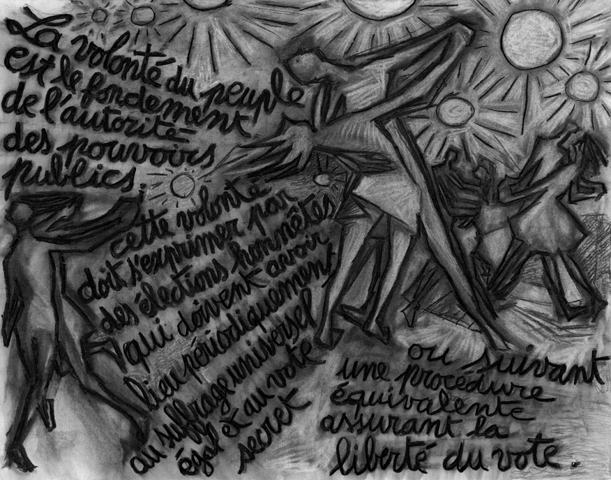 La volonté du peuple
est le fondement
de l'autorité
des pouvoirs
publics ;
cette volonté
doit s'exprimer par
des élections honnêtes
qui doivent avoir
lieu périodiquement
au suffrage universel
égal et au vote
secret
ou suivant
une procédure
équivalente
assurant la
liberté du vote.